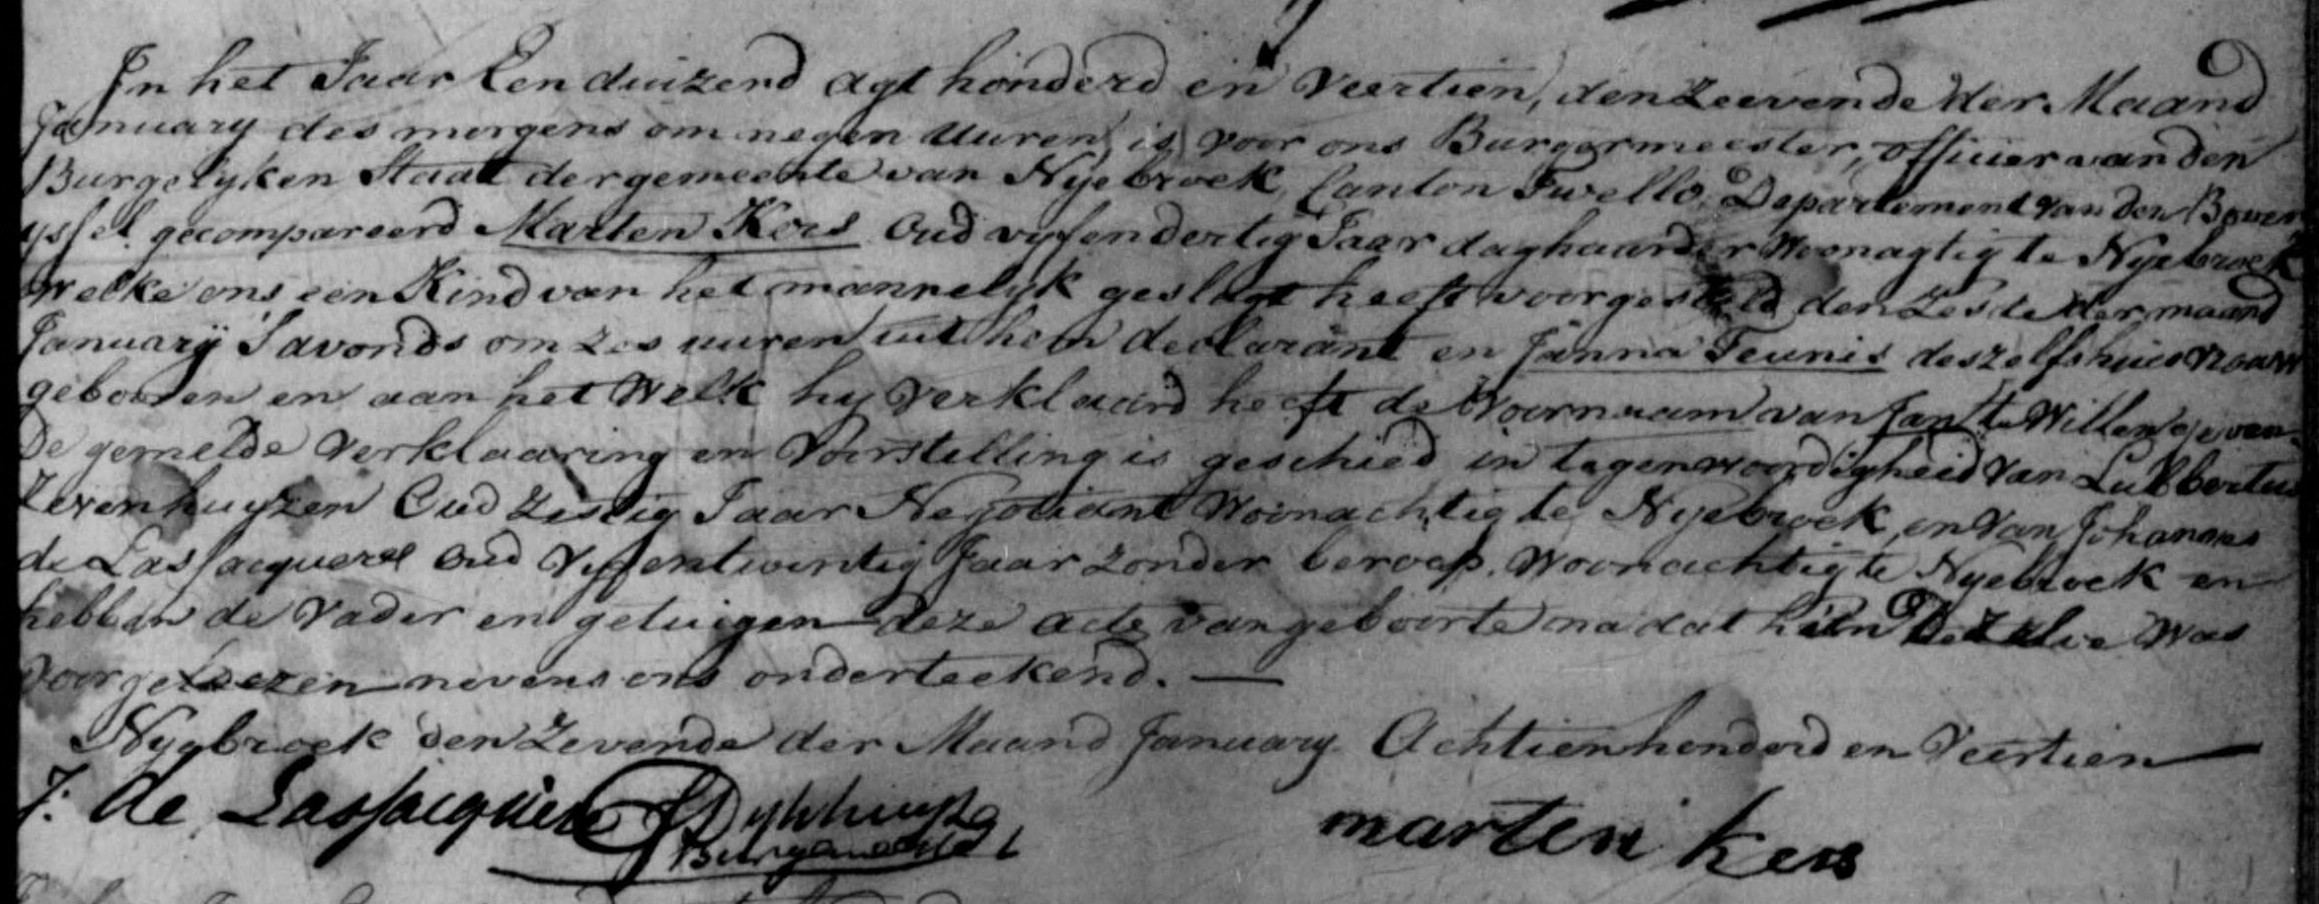 In het Jaar Een duizend agt honderd en Veertien, den Zeevende der Maand
January des morgens om negen Uuren, is voor ons Burgermeester, officier van den
Burgelyken Staat der gemeente van Nyebroek, Canton Twello, Departement van den Boven
yssel gecompareerd Marten Kers Oud vyfendertig Jaar daghuurder Woonagtig te Nyebroek
Welke ons een Kind van het mannelyk geslagt heeft voorgesteld den Zesde der maand
January 'Savonds om zes uuren uit hem declarant en Janna Teunis deszelfs huisvrouw
gebooren en aan het Welk hy Verklaard heeft de Voornaam van Jan te Willen geeven
De gemelde Verklaaring en Voorstelling is geschied in tegenwoordigheid van Lubbertus
Zevenhuyzen Oud Zestig Jaar Negotiant Woonachtig te Nyebroek, en van Johannes
de Lassacquere Oud Vyfentwintig Jaar zonder beroep. Woonachtig te Nyebroek en
hebben de Vader en getuigen deze acte van geboorte na dat hun Dezelve Was
Voorgeleezen nevens ons onderteekend. —
Nyebroek den Zevende der Maand January Achtienhonderd en Veertien
J: de Lassacquere Dykhuyse marten kers
Burgemeester